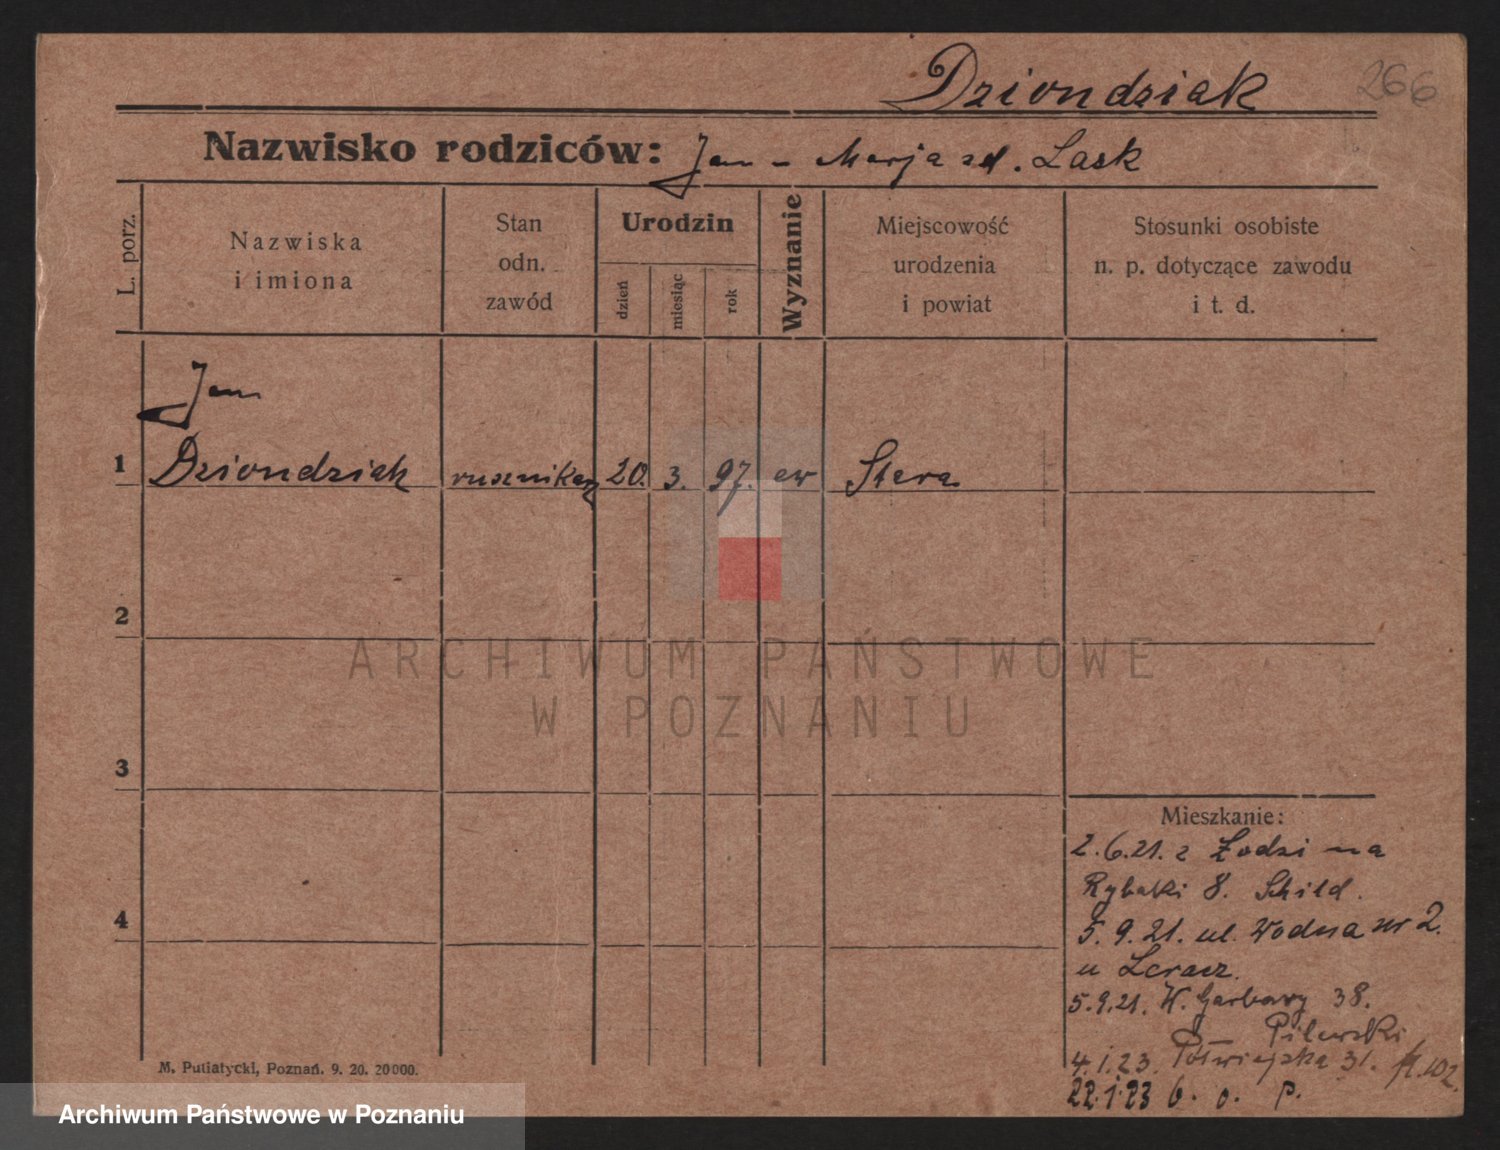 Dziondziak
266
Nazwisko rodziców: Jan - Marja zd. Lask
L. porz.
Nazwiska
i imiona
Stan
odn.
zawód
Urodzin
dzień
miesiąc
rok
Wyznanie
Miejscowość
urodzenia
i powiat
Stosunki osobiste
n. p. dotyczące zawodu
i t. d.
Jan
1 Dziondziak rusznikarz 20. 3. 97. ew Stara
2
ARCHIWUM PAŃSTWOWE
W POZNANIU
3
4
Mieszkanie:
2.6.21. z Łodzi na
Rybaki 8. Schild.
5.9.21. ul. Wodna nr 2.
u
5.9.21. W. Garbary 38.
Pilawski
4.1.23. Półwiejska 31.
22.1.23 b. o. p.
M. Putiatycki, Poznań. 9. 20. 20000.
Archiwum Państwowe w Poznaniu